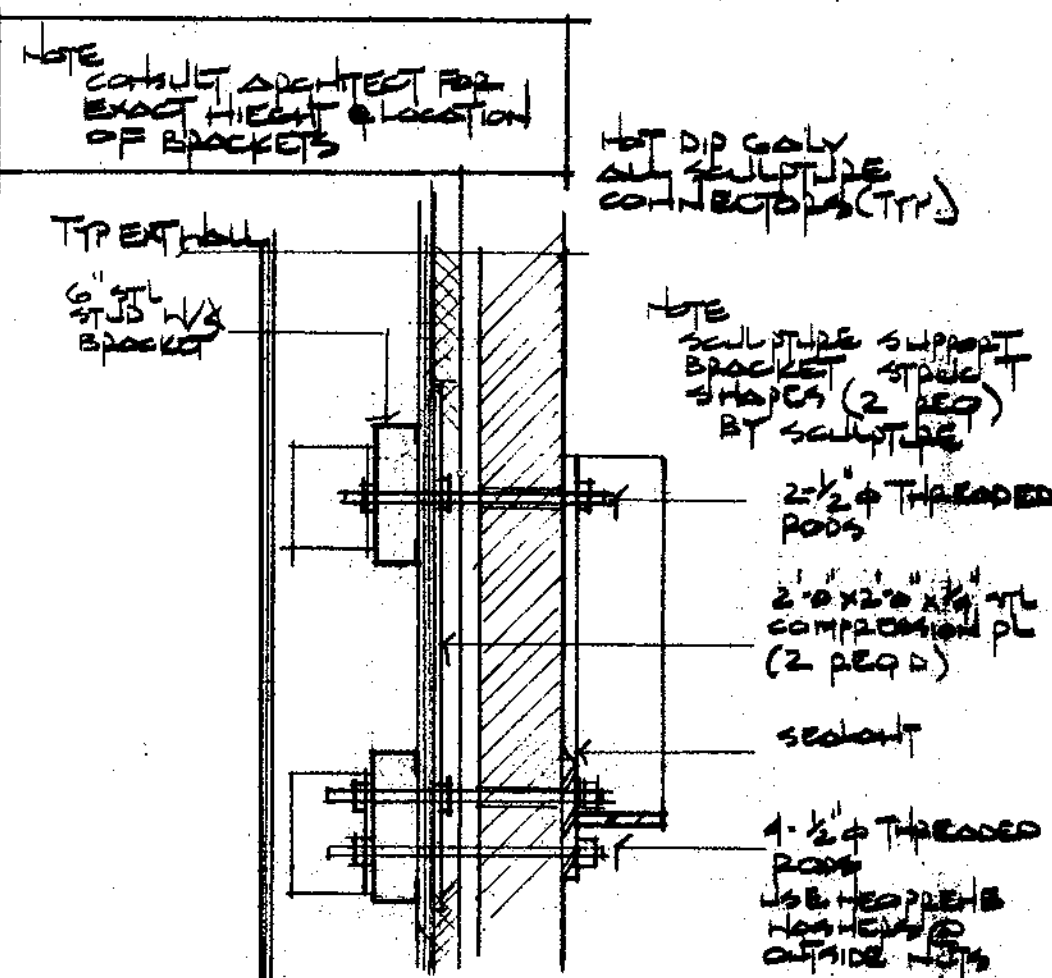 NOTE
CONSULT ARCHITECT FOR
EXACT HIEGHT @ LOCATION
OF BRACKETS
HOT DIP GALV
ALL SCULPTURE
CONNECTORS (TYP.)
TYP EXT WALL
6" STL
STUD W/
BRACKET
NOTE
SCULPTURE SUPPORT
BRACKET STRUCT
SHAPES (2 REQ)
BY SCULPTURE
2-1/2" φ THREADED
RODS
2'-0" x 2'-0" x 1/4" STL
COMPRESSION PL
(2 REQ D)
SEALANT
4-1/2" φ THREADED
RODS
USE NEOPRENE
WASHERS @
OUTSIDE NUTS